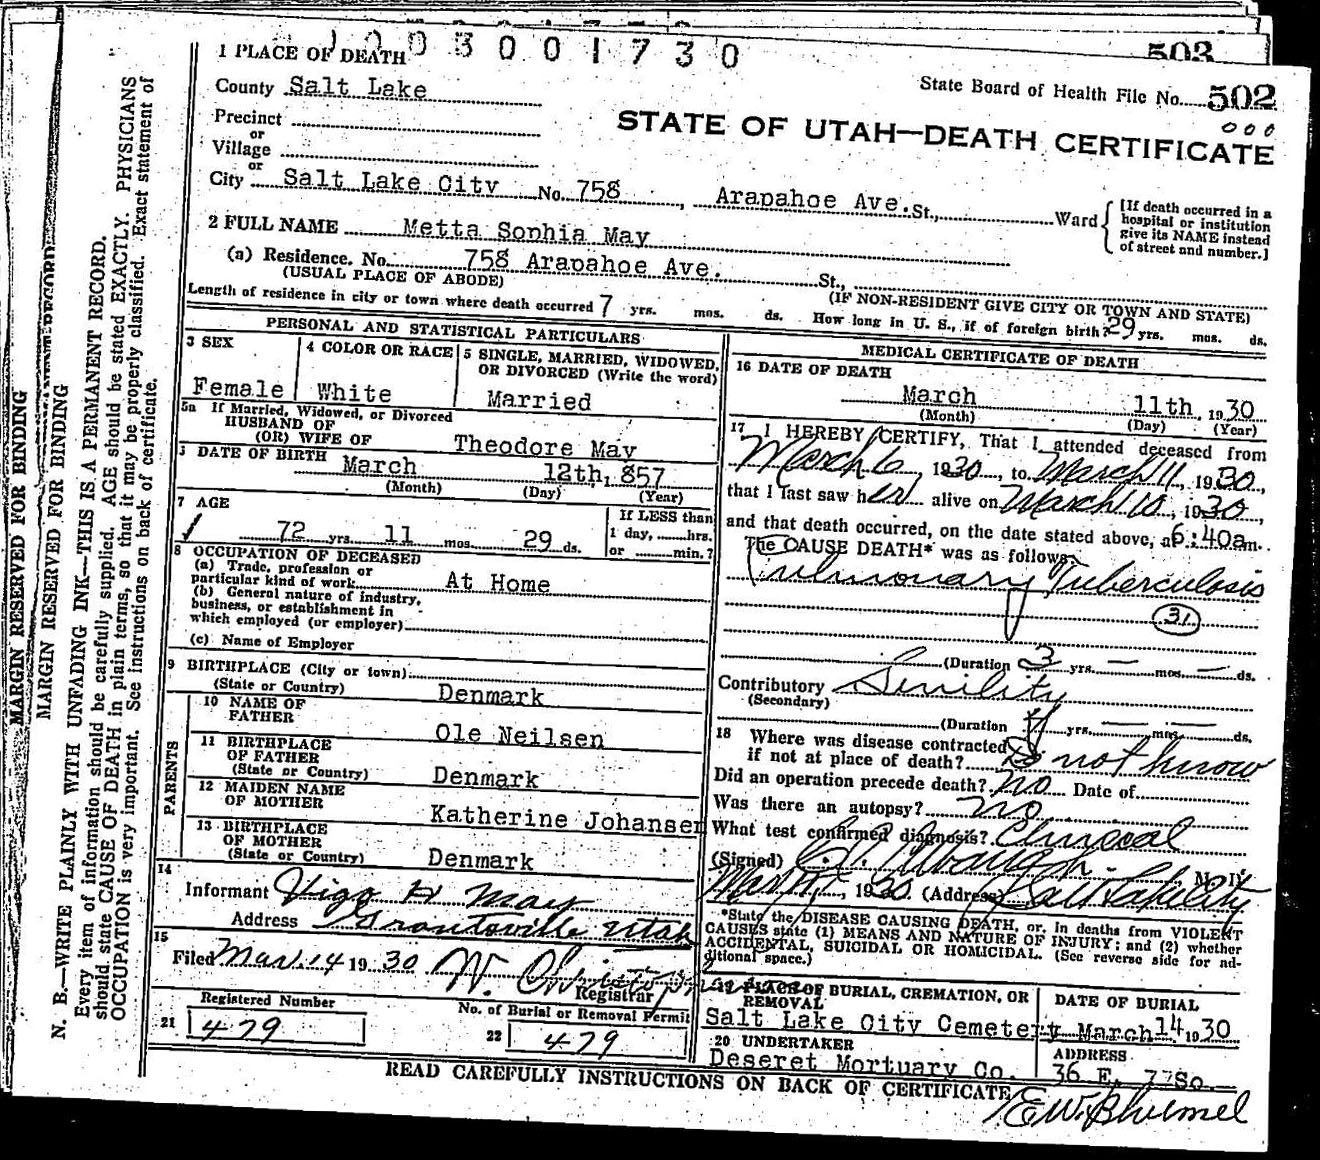 1003001730
503
1 PLACE OF DEATH
State Board of Health File No. 502
000
County Salt Lake
STATE OF UTAH—DEATH CERTIFICATE
Precinct
or
Village
or
City Salt Lake City No. 758, Arapahoe Ave. St., Ward
[If death occurred in a hospital or institution give its NAME instead of street and number.]
2 FULL NAME Metta Sophia May
(a) Residence. No. 758 Arapahoe Ave. St.,
(USUAL PLACE OF ABODE) (IF NON-RESIDENT GIVE CITY OR TOWN AND STATE)
Length of residence in city or town where death occurred 7 yrs. mos. ds. How long in U. S., if of foreign birth? 29 yrs. mos. ds.
PERSONAL AND STATISTICAL PARTICULARS
3 SEX
Female
4 COLOR OR RACE
White
5 SINGLE, MARRIED, WIDOWED, OR DIVORCED (Write the word)
Married
5a If Married, Widowed, or Divorced
HUSBAND OF
(OR) WIFE OF Theodore May
DATE OF BIRTH March 12th, 857
(Month) (Day) (Year)
7 AGE
72 yrs. 11 mos. 29 ds.
If LESS than
1 day, hrs.
or min.?
8 OCCUPATION OF DECEASED
(a) Trade, profession or
particular kind of work At Home
(b) General nature of industry,
business, or establishment in
which employed (or employer)
(c) Name of Employer
9 BIRTHPLACE (City or town)
(State or Country) Denmark
PARENTS
10 NAME OF
FATHER Ole Neilsen
11 BIRTHPLACE
OF FATHER
(State or Country) Denmark
12 MAIDEN NAME
OF MOTHER Katherine Johansen
13 BIRTHPLACE
OF MOTHER
(State or Country) Denmark
14
Informant Vigo H May
Address Grantsville Utah
15
Filed Mar. 14 1930
Registrar
Registered Number
21 479
No. of Burial or Removal Permit
22 479
MEDICAL CERTIFICATE OF DEATH
16 DATE OF DEATH
March 11th, 1930
(Month) (Day) (Year)
17 I HEREBY CERTIFY, That I attended deceased from
March 6, 1930, to March 11, 1930,
that I last saw her alive on March 10, 1930,
and that death occurred, on the date stated above, a 6:40a m.
The CAUSE DEATH* was as follows:
Pulmonary Tuberculosis
31
(Duration 3 yrs. — mos. — ds.
Contributory Senility
(Secondary)
(Duration yrs. — mos. — ds.
18 Where was disease contracted
if not at place of death? Do not know
Did an operation precede death? No Date of
Was there an autopsy? no
What test confirmed diagnosis? Clinical
(Signed) M. D.
1930 (Address) Salt Lake City
*State the DISEASE CAUSING DEATH, or, in deaths from VIOLENT
CAUSES state (1) MEANS AND NATURE OF INJURY; and (2) whether
ACCIDENTAL, SUICIDAL OR HOMICIDAL. (See reverse side for ad-
ditional space.)
19 PLACE OF BURIAL, CREMATION, OR
REMOVAL
Salt Lake City Cemetery
DATE OF BURIAL
March 14 1930
20 UNDERTAKER
Deseret Mortuary Co.
ADDRESS
36 E. 7 So.
READ CAREFULLY INSTRUCTIONS ON BACK OF CERTIFICATE
MARGIN RESERVED FOR BINDING
MARGIN RESERVED FOR BINDING
N. B.—WRITE PLAINLY WITH UNFADING INK—THIS IS A PERMANENT RECORD.
Every item of information should be carefully supplied. AGE should be stated EXACTLY. PHYSICIANS
should state CAUSE OF DEATH in plain terms, so that it may be properly classified. Exact statement of
OCCUPATION is very important. See instructions on back of certificate.